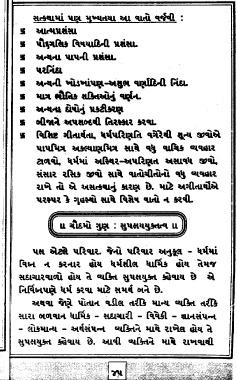 સત્કથામાં પણ મુખ્યતયા આ વાતો વર્જવી :
આત્મપ્રશંસા
પૌદ્ગલિક વિષયાદિની પ્રશંસા.
અન્યના પાપની પ્રશંસા.
પરનિંદા
અન્યની ખોડખાંપણ-અશુભ વર્ણાદિની નિંદા.
માત્ર ભૌતિક શક્તિઓનું વર્ણન.
અન્યના દોષોનું પ્રકટીકરણ
બીજાને અપશબ્દથી તિરસ્કાર કરવા.
વિશિષ્ટ ગીતાર્થતા, ધર્મપરિણતિ વગેરેથી શૂન્ય જીવોએ
પાપમિત્ર અકલ્યાણમિત્ર સાથે બધું વાચિક વ્યવહાર
ટાળવો, ધર્મમાં અસ્થિર-અપરિણત અસાવધ જીવો,
સંસાર રસિક જીવો સાથે વાતોચીતોનો બહુ વ્યવહાર
રાખે તો એ અસત્કથાનું કારણ છે. માટે અગીતાર્થોએ
પરસ્પર કે ગૃહસ્થો સાથે વિશેષ વાતો ન કરવી.
॥ ચૌદમો ગુણ : સુપક્ષયુક્તત્વ ॥
પક્ષ એટલે પરિવાર. જેનો પરિવાર અનુકૂલ - ધર્મમાં
વિઘ્ન ન કરનાર હોય ધર્મશીલ ધાર્મિક હોય તેમજ
સદાચારવાળો હોય તે વ્યક્તિ સુપક્ષયુક્ત કહેવાય છે એ
નિર્વિઘ્નપણે ધર્મ કરવા માટે સમર્થ બને છે.
અથવા જેણે પોતાના વડીલ તરીકે માન્ય વ્યક્તિ તરીકે
સારા બળવાન ધાર્મિક - સદાચારી - વિવેકી - જ્ઞાનસંપન્ન
- લોકમાન્ય - અર્થસંપન્ન વ્યક્તિને માથે રાખેલ હોય તે
સુપક્ષયુક્ત કહેવાય છે. આવી વ્યક્તિને માથે રાખવાથી
૩૫